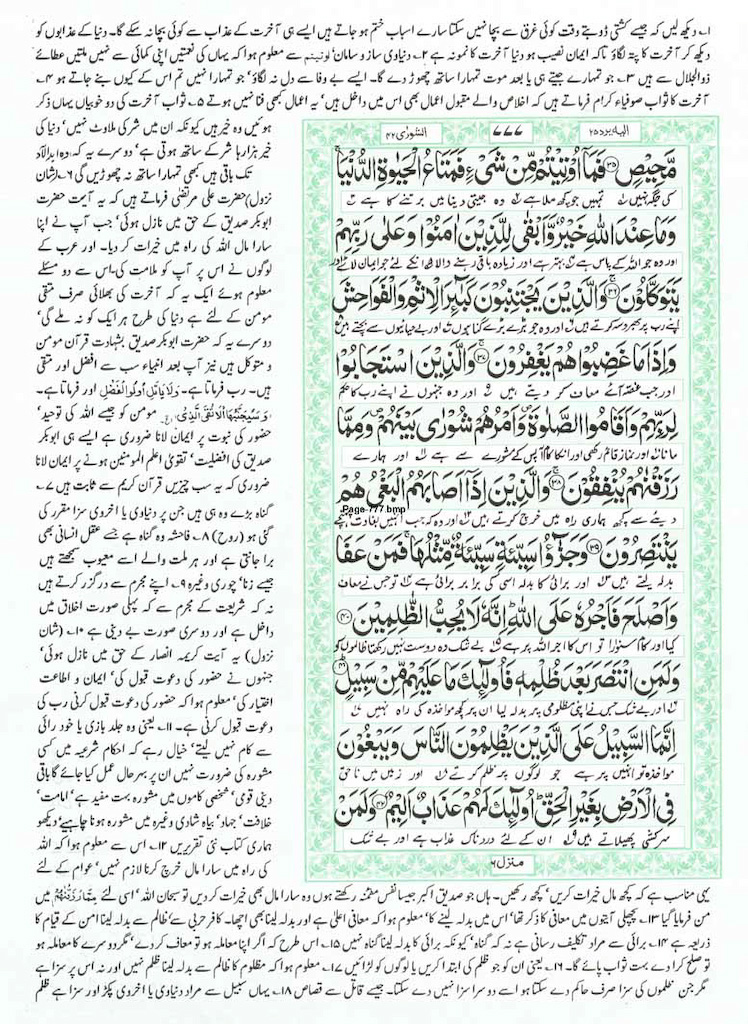 ۱؎ دیکھ لیں کہ جیسے کشتی ڈوبتے وقت کوئی غرق سے بچا نہیں سکتا سارے اسباب ختم ہو جاتے ہیں ایسے ہی آخرت کے عذاب سے کوئی بچانہ سکے گا۔ دنیا کے عذابوں کو
دیکھ کر آخرت کا پتہ لگاؤ تاکہ ایمان نصیب ہو دنیا آخرت کا نمونہ ہے ۲؎ دنیاوی ساز و سامان' اوتیتم سے معلوم ہوا کہ یہاں کی نعمتیں اپنی کمائی سے نہیں ملتیں عطائے
ذوالجلال سے ہیں ۳؎ جو تمہارے جیتے ہی یا بعد موت تمہارا ساتھ چھوڑ دے گا۔ ایسے بے وفا سے دل نہ لگاؤ' جو تمہارا نہیں تم اس کے کیوں بنے جاتے ہو ۴؎
آخرت کا ثواب صوفیاء کرام فرماتے ہیں کہ اخلاص والے مقبول اعمال بھی اس میں داخل ہیں' یہ اعمال کبھی فنا نہیں ہوتے ۵؎ ثواب آخرت کی دو خوبیاں یہاں ذکر
ہوئیں وہ خیر ہیں کیونکہ ان میں شر کی ملاوٹ نہیں' دنیا کی
خیر ہزارہا شر کے ساتھ ہوتی ہے' دوسرے یہ کہ وہ ابدالآباد
تک باقی ہیں کبھی تمہارا ساتھ نہ چھوڑیں گی ۶؎ (شان
نزول) حضرت علی مرتضٰی فرماتے ہیں کہ یہ آیت حضرت
ابوبکر صدیق کے حق میں نازل ہوئی' جب آپ نے اپنا
سارا مال اللہ کی راہ میں خیرات کر دیا۔ اور عرب کے
لوگوں نے اس پر آپ کو ملامت کی۔ اس سے دو مسئلے
معلوم ہوئے ایک یہ کہ آخرت کی بھلائی صرف متقی
مومن کے لئے ہے دنیا کی طرح ہر ایک کو نہ ملے گی'
دوسرے یہ کہ حضرت ابوبکر صدیق بشہادت قرآن مومن
و متوکل ہیں نیز آپ بعد انبیاء سب سے افضل اور متقی
ہیں۔ رب فرماتا ہے۔ وَلَا یَاتَلِ اُولُوا الْفَضْلِ اور فرماتا ہے۔
وَسَیُجَنَّبُهَا الْاَتْقَی الَّذِیْ مومن کو جیسے اللہ کی توحید'
حضور کی نبوت پر ایمان لانا ضروری ہے ایسے ہی ابوبکر
صدیق کی افضلیت' تقویٰ اعلم المومنین ہونے پر ایمان لانا
ضروری کہ یہ سب چیزیں قرآن کریم سے ثابت ہیں ۷؎
گناہ بڑے وہ ہی ہیں جن پر دنیاوی یا اخروی سزا مقرر کی
گئی ہو (روح) ۸؎ فاحشہ وہ گناہ ہے جسے عقل انسانی بھی
برا جانتی ہے اور ہر ملت والے اسے معیوب سمجھتے ہیں
جیسے زنا' چوری وغیرہ ۹؎ اپنے مجرم سے درگزر کرتے ہیں
نہ کہ شریعت کے مجرم سے کہ پہلی صورت اخلاق میں
داخل ہے اور دوسری صورت بے دینی ہے ۱۰؎ (شان
نزول) یہ آیت کریمہ انصار کے حق میں نازل ہوئی'
جنہوں نے حضور کی دعوت قبول کی' ایمان و اطاعت
اختیار کی' معلوم ہوا کہ حضور کی دعوت قبول کرنی رب کی
دعوت قبول کرنی ہے۔ ۱۱؎ یعنی وہ جلد بازی یا خود رائی
سے کام نہیں لیتے' خیال رہے کہ احکام شرعیہ میں کسی
مشورہ کی ضرورت نہیں ان پر بہرحال عمل کیا جائے گا باقی
دینی قومی' شخصی کاموں میں مشورہ بہت مفید ہے' امامت'
خلافت' جہاد' بیاہ شادی وغیرہ میں مشورہ ہونا چاہیے' دیکھو
ہماری کتاب نئی تقریریں ۱۲؎ اس سے معلوم ہوا کہ اللہ
کی راہ میں سارا مال خرچ کرنا لازم نہیں' عوام کے لئے
الیہ یرد ۲۵
۷۷۷
الشورٰی ۴۲
مَّحِیْصٍ ۝۳۵ فَمَاۤ اُوْتِیْتُمْ مِّنْ شَیْءٍ فَمَتَاعُ الْحَیٰوةِ الدُّنْیَا ۚ
کی جگہ نہیں ۱؎ تمہیں جو کچھ ملا ہے ۲؎ وہ جیتی دنیا میں برتنے کا ہے ۳؎
وَمَا عِنْدَ اللّٰهِ خَیْرٌ وَّاَبْقٰی لِلَّذِیْنَ اٰمَنُوْا وَعَلٰی رَبِّهِمْ
اور وہ جو اللہ کے پاس ہے ۴؎ بہتر ہے اور زیادہ باقی رہنے والا ۵؎ انکے لئے جو ایمان لائے اور
یَتَوَكَّلُوْنَ ۝۳۶ وَالَّذِیْنَ یَجْتَنِبُوْنَ كَبٰٓىِٕرَ الْاِثْمِ وَالْفَوَاحِشَ
اپنے رب پر بھروسہ کرتے ہیں ۶؎ اور وہ جو بڑے بڑے گناہوں ۷؎ اور بے حیائیوں سے بچتے ہیں ۸؎
وَاِذَا مَا غَضِبُوْا هُمْ یَغْفِرُوْنَ ۝۳۷ وَالَّذِیْنَ اسْتَجَابُوْا
اور جب غصہ آئے معاف کر دیتے ہیں ۹؎ اور وہ جنہوں نے اپنے رب کا حکم
لِرَبِّهِمْ وَاَقَامُوا الصَّلٰوةَ وَاَمْرُهُمْ شُوْرٰی بَیْنَهُمْ وَمِمَّا
مانا ۱۰؎ اور نماز قائم رکھی اور انکا کام آپس کے مشورے سے ہے ۱۱؎ اور ہمارے
رَزَقْنٰهُمْ یُنْفِقُوْنَ ۝۳۸ وَالَّذِیْنَ اِذَاۤ اَصَابَهُمُ الْبَغْیُ هُمْ
Page-777.bmp
دیئے سے کچھ ہماری راہ میں خرچ کرتے ہیں ۱۲؎ اور وہ کہ جب انہیں بغاوت پہنچے
یَنْتَصِرُوْنَ ۝۳۹ وَجَزٰٓؤُا سَیِّئَةٍ سَیِّئَةٌ مِّثْلُهَا ۚ فَمَنْ عَفَا
بدلہ لیتے ہیں ۱۳؎ اور برائی کا بدلہ اسی کی برابر برائی ہے ۱۴؎ تو جس نے معاف
وَاَصْلَحَ فَاَجْرُهٗ عَلَی اللّٰهِ ؕ اِنَّهٗ لَا یُحِبُّ الظّٰلِمِیْنَ ۝۴۰
کیا اور کام سنوارا تو اس کا اجر اللہ پر ہے ۱۵؎ بے شک وہ دوست نہیں رکھتا ظالموں کو
وَلَمَنِ انْتَصَرَ بَعْدَ ظُلْمِهٖ فَاُولٰٓىِٕكَ مَا عَلَیْهِمْ مِّنْ سَبِیْلٍ ۝۴۱
اور بے شک جس نے اپنی مظلومی پر بدلہ لیا ان پر کچھ مواخذہ کی راہ نہیں
اِنَّمَا السَّبِیْلُ عَلَی الَّذِیْنَ یَظْلِمُوْنَ النَّاسَ وَیَبْغُوْنَ
مواخذہ تو انہیں پر ہے جو لوگوں پر ظلم کرتے ہیں اور زمین میں ناحق
فِی الْاَرْضِ بِغَیْرِ الْحَقِّ ؕ اُولٰٓىِٕكَ لَهُمْ عَذَابٌ اَلِیْمٌ ۝۴۲ وَلَمَنْ
سرکشی پھیلاتے ہیں ان کے لئے دردناک عذاب ہے اور بے شک
منزل ۶
یہی مناسب ہے کہ کچھ مال خیرات کریں' کچھ رکھیں۔ ہاں جو صدیق اکبر جیسا نفس مطمئنہ رکھتے ہوں وہ سارا مال بھی خیرات کر دیں تو سبحان اللہ' اسی لئے مِمَّا رَزَقْنٰهُمْ میں
من فرمایا گیا ۱۳؎ پچھلی آیتوں میں معافی کا ذکر تھا' اس میں بدلہ لینے کا' معلوم ہوا کہ معافی اعلٰی ہے اور بدلہ لینا بھی اچھا۔ کافر حربی سے' ظالم سے بدلہ لینا امن کے قیام کا
ذریعہ ہے ۱۴؎ برائی سے مراد تکلیف رسانی ہے نہ کہ گناہ' کیونکہ برائی کا بدلہ لینا گناہ نہیں ۱۵؎ اس طرح کہ اگر اپنا معاملہ ہو تو معاف کر دے' مگر دوسرے کا معاملہ ہو
تو صلح کرا دے بہت ثواب پائے گا۔ ۱۶؎ یعنی ان کو جو ظلم کی ابتدا کریں یا لوگوں کو لڑائیں ۱۷؎ معلوم ہوا کہ مظلوم کا ظالم سے بدلہ لینا ظلم نہیں اور نہ اس پر سزا ہے
مگر جن ظلموں کی سزا صرف حاکم دے سکتا ہو اسے دوسرا سزا نہیں دے سکتا۔ جیسے قاتل سے قصاص ۱۸؎ یہاں سبیل سے مراد دنیاوی یا اخروی پکڑ اور سزا ہے ظلم